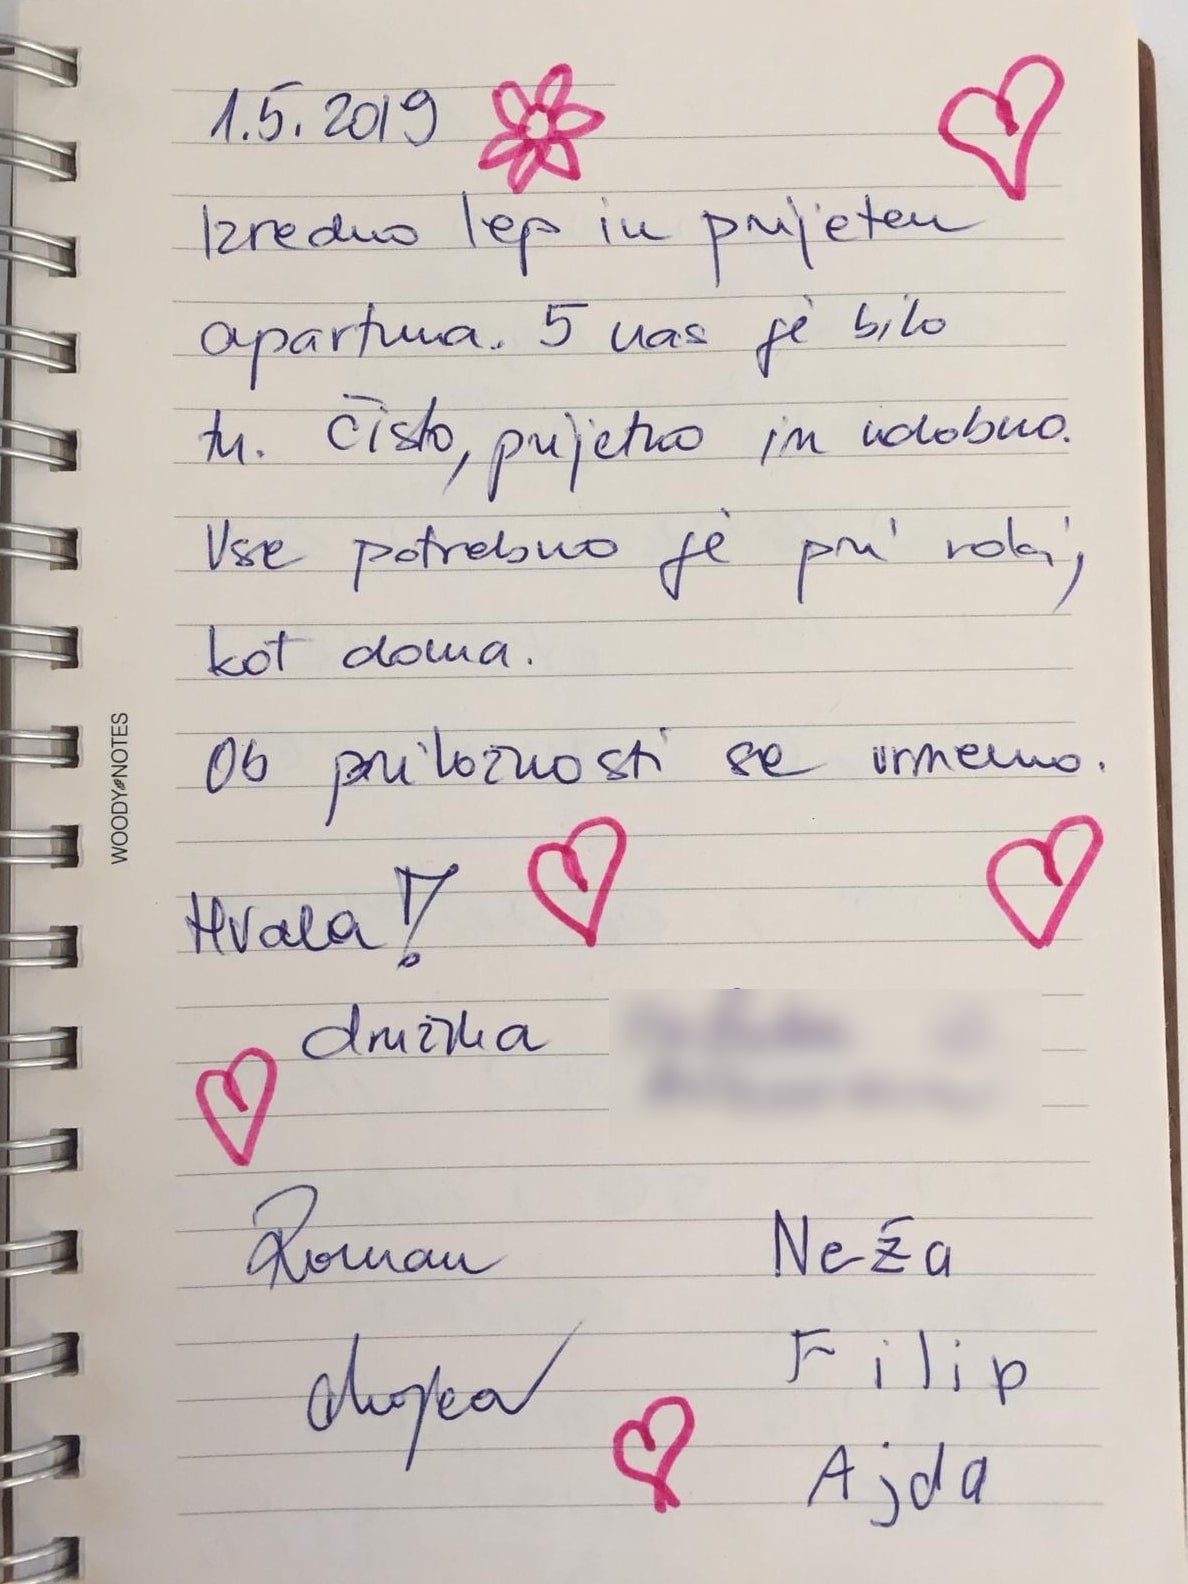 1.5.2019
Izredno lep in prijeten
apartma. 5 nas je bilo
tu. Čisto, prijetno in udobno.
Vse potrebno je pri roki,
kot doma.
Ob priložnosti se vrnemo.
Hvala!
družina
Roman
Neža
Filip
Ajda
WOODY NOTES